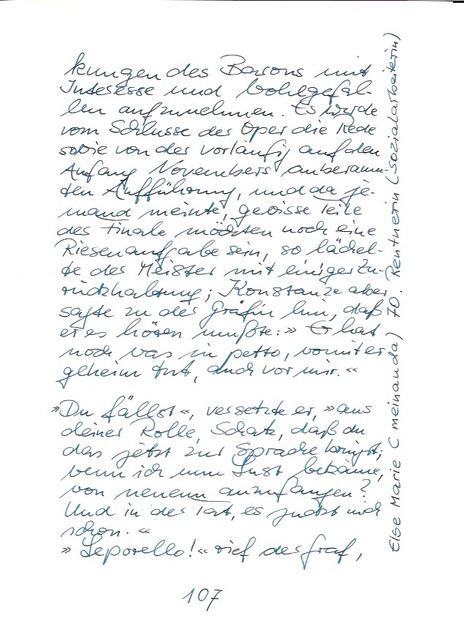 kungen des Barons mit
Interesse und Wohlgefal-
len aufzunehmen. Es wurde
vom Schlusse der Oper die Rede
sowie von der vorläufig auf den
Anfang Novembers anberaum-
ten Aufführung, und da je-
mand meinte, gewisse Teile
des Finale möchten noch eine
Riesenaufgabe sein, so lächel-
te der Meister mit einiger Zu-
rückhaltung; Konstanze aber
sagte zu der Gräfin hin, daß
er es hören mußte: » Er hat
noch was in petto, womit er
geheim tut, auch vor mir. «
»Du fällst«, versetzte er, »aus
deiner Rolle, Schatz, daß du
das jetzt zur Sprache bringst;
wenn ich nun Lust bekäme,
von neuem anzufangen?
Und in der Tat, es juckt mich
schon. «
» Leporello! « rief der Graf,
107
Else Marie ( meinanda) 70. Rentnerin (Sozialarbeiterin)